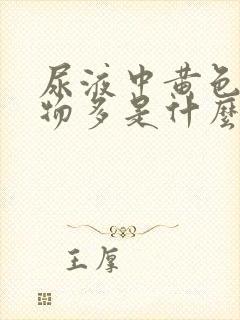 尿液中黄色
物多是什麼
王厚